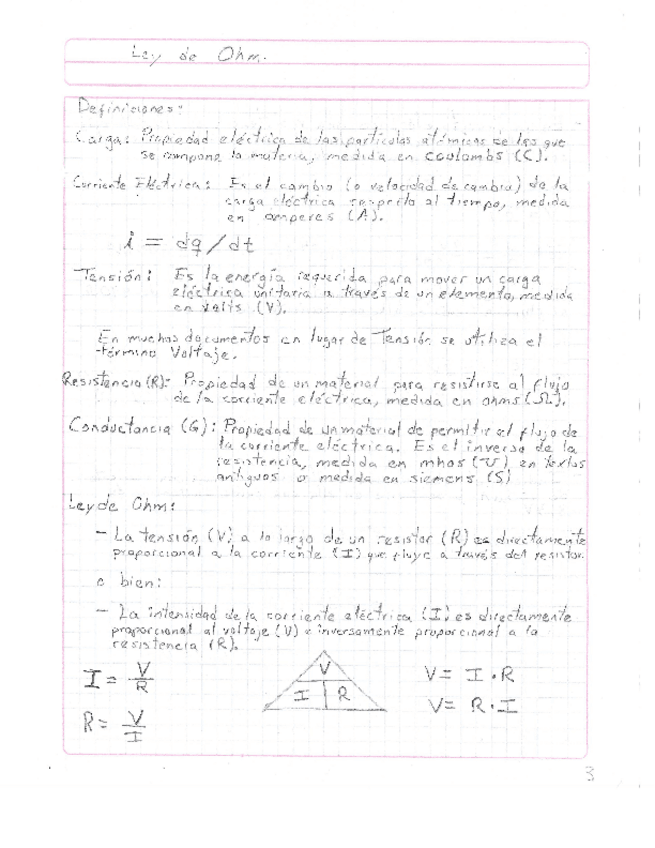 Ley de Ohm.
Definiciones:
Carga: Propiedad eléctrica de las partículas atómicas de las que
se compone la materia, medida en coulombs (C).
Corriente Eléctrica: Es el cambio (o velocidad de cambio) de la
carga eléctrica respecto al tiempo, medida
en amperes (A).
i = dq/dt
Tensión: Es la energía requerida para mover un carga
eléctrica unitaria a través de un elemento, medida
en volts (V).
En muchos documentos en lugar de Tensión se utiliza el
término Voltaje.
Resistencia (R): Propiedad de un material para resistirse al flujo
de la corriente eléctrica, medida en ohms (Ω).
Conductancia (G): Propiedad de un material de permitir el flujo de
la corriente eléctrica. Es el inverso de la
resistencia, medida en mhos (℧) en textos
antiguos o medida en siemens (S)
Ley de Ohm:
- La tensión (V) a lo largo de un resistor (R) es directamente
proporcional a la corriente (I) que fluye a través del resistor.
o bien:
- La intensidad de la corriente eléctrica (I) es directamente
proporcional al voltaje (V) e inversamente proporcional a la
resistencia (R).
I = V/R
R = V/I
V
I R
V = I · R
V = R · I
3